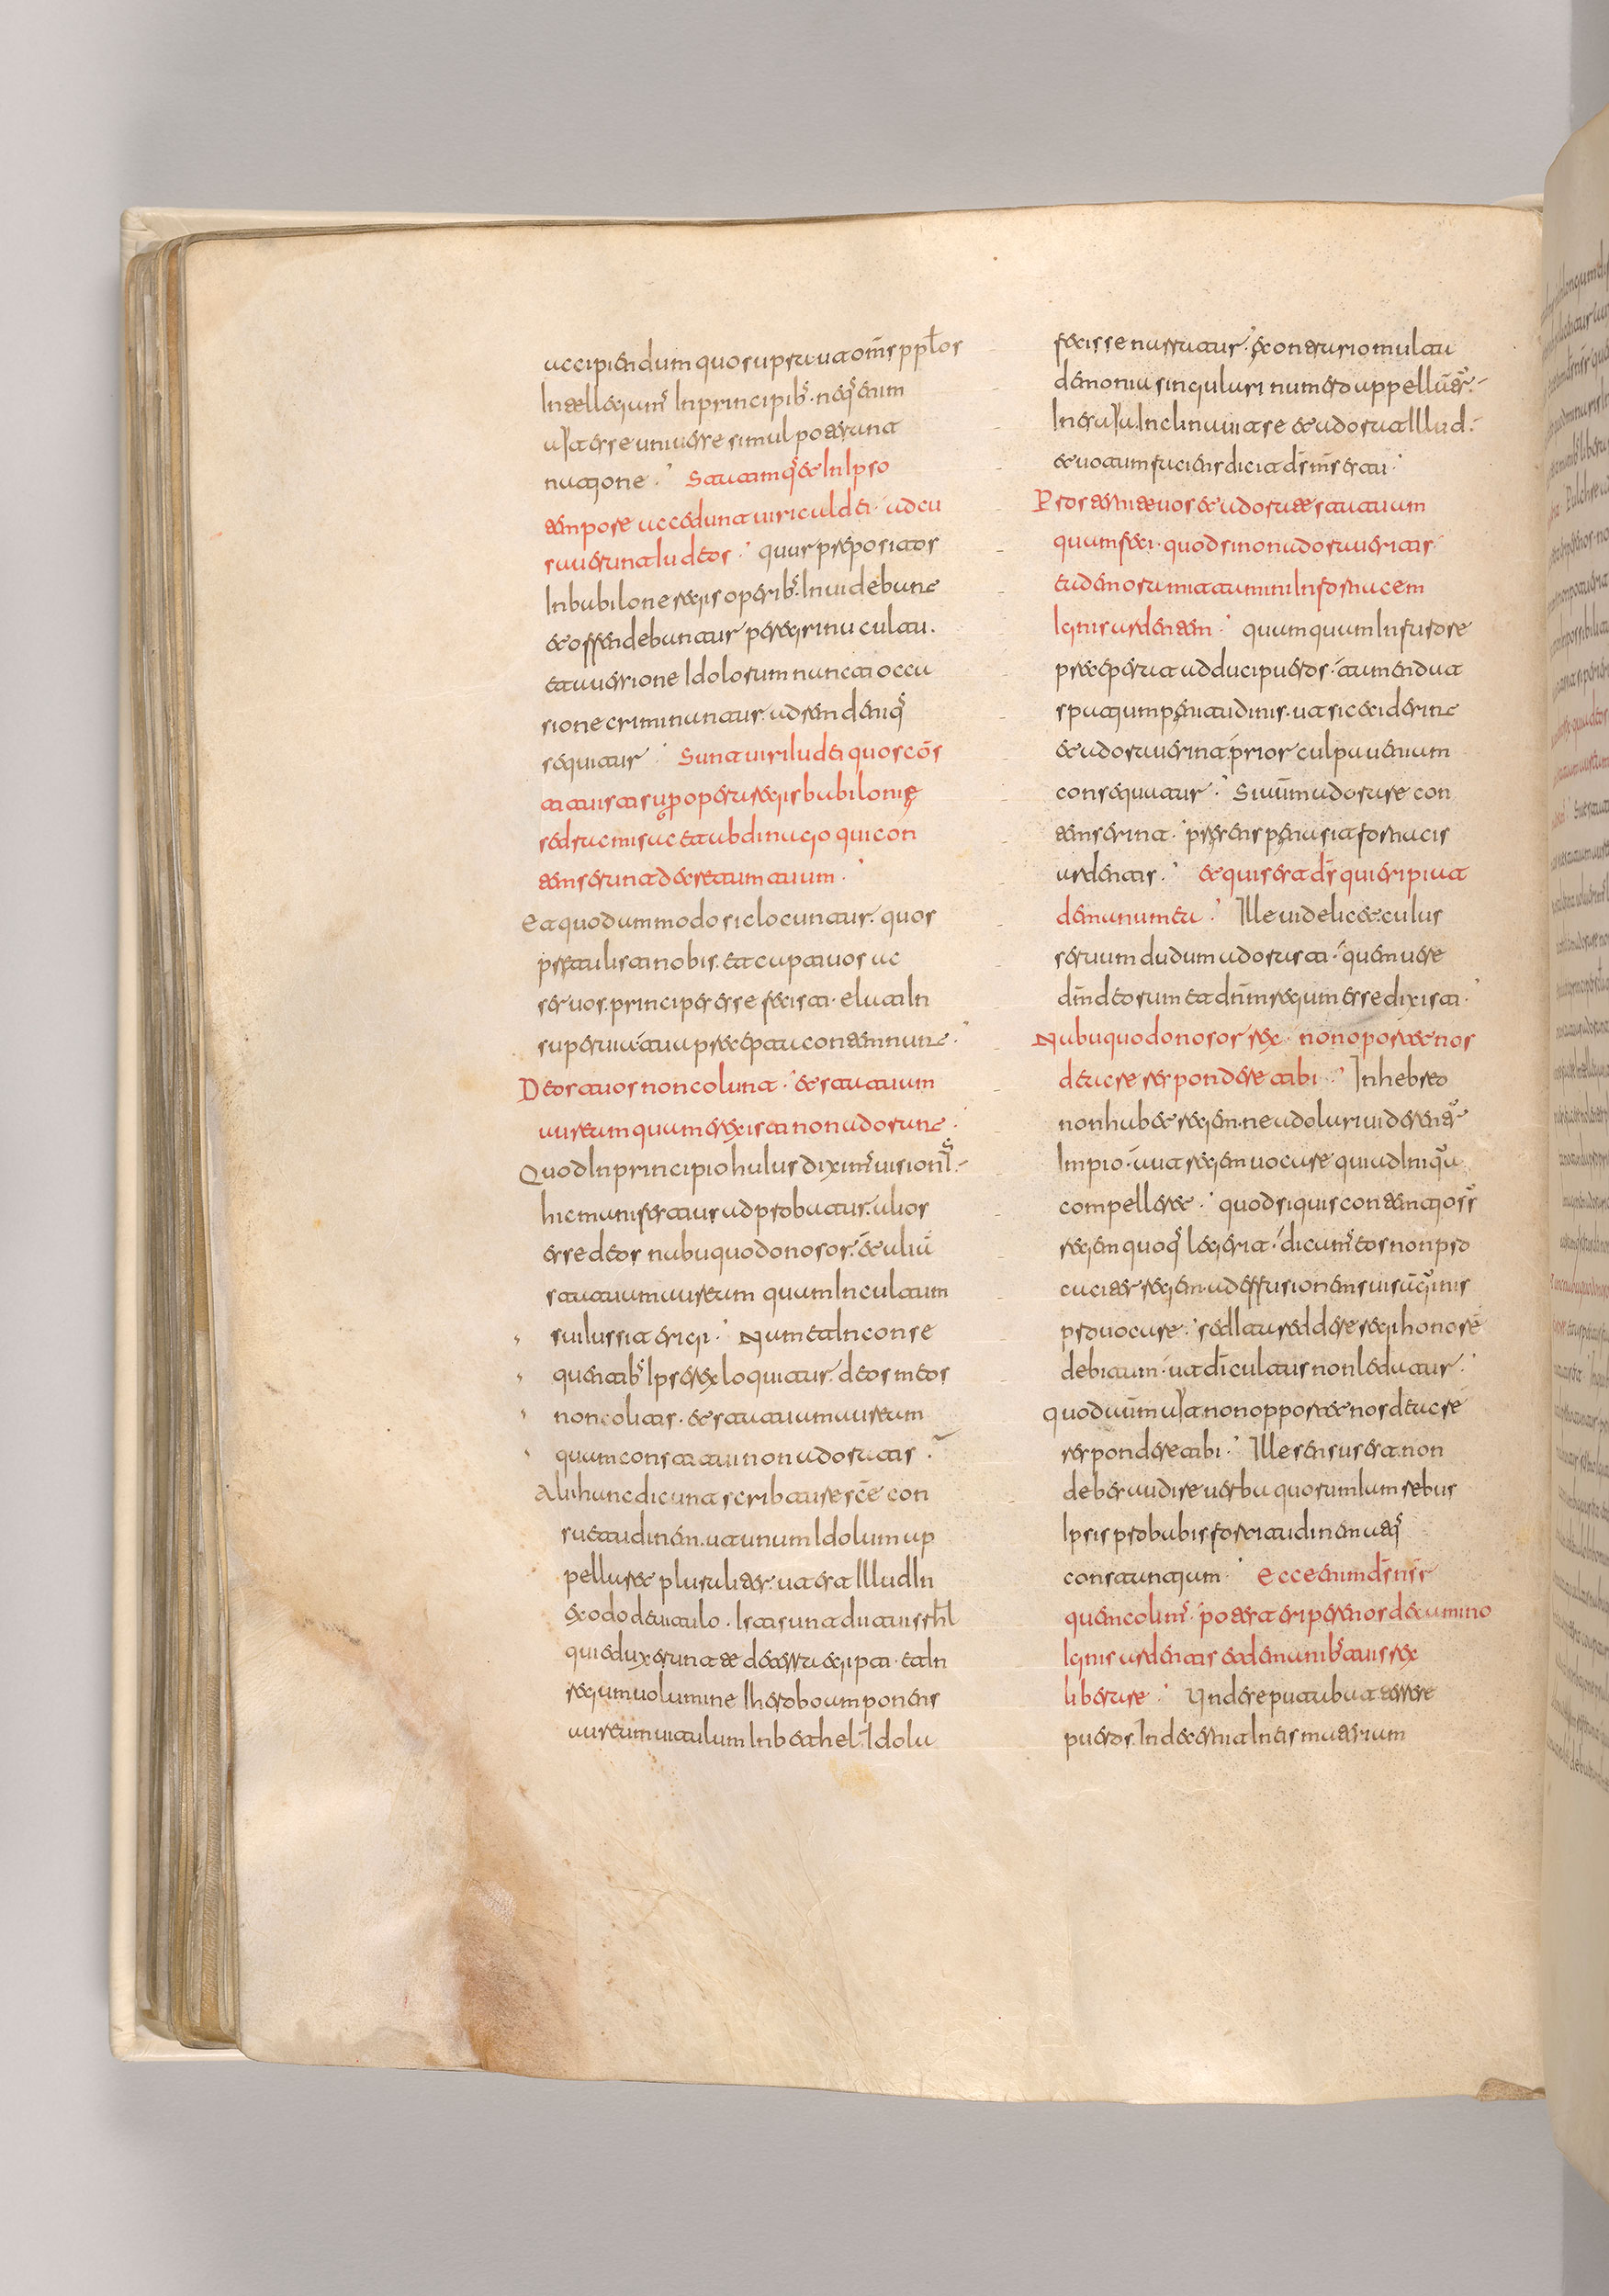 accipiendum quo supra ut om̄s pp̄los
Intellegamꝰ In principibꝰ· neqꝫ enim
uasta esse uniuerse simul poterunt
natione· Statimqꝫ et In Ipso
tempore accedunt uiri culdei· adcu
sauerunt Iudeos· quur prepositos
In babilone regis operibꝰ· Inuidebant
et offendebantur peregrina cultu·
et auersione Idolorum nuncti occa
sione criminantur· adsendeniqꝫ
sequitur· Sunt uiri Iudei quos cōs
tituisti sup̱ opera regis babilonię
sedrac misac et abdinago qui con
temserunt decretum tuum·
Et quodammodo sic locuntur· quos
prętulisti nobis· et captiuos ac
seruos· principes esse fecisti· elati In
superuia tua precepta contemnunt·
Deos tuos non colunt· et statuam
auream quam erexisti non adorant·
Quod In principio huius diximꝰ uisionis·
hic manifestius adprobatur· alios
esse deos nabuquodonosor· et aliā
statuam auream quam In cultum
sui Iussit erigi· Nam et In conse
quentibꝰ Ipse rex loquitur· deos meos
non colitis· et statuam auream
quam constitui non adoratis·
Alii hanc dicunt scribture sc̄e con
suetudinem· ut unum Idolum ap
pellaret pluraliter· ut est Illud In
exodo de uitulo· Isti sunt dii tui sr̄hl
qui eduxerunt te de terra egipti· et In
regum uolumine Iheroboum ponens
aureum uitulum In bethel· Idola
fecisse narratur· et contrario multi
demonia singulari numero appellātr̄·
In esaya· Inclinauit se et adorat Illud·
et uotum faciens dicit ds̄ ms̄ es tu·
Pros ternite uos et adorate statuam
quam feci· quod si non adoraueritis·
eadem ora mittimini In fornacem
Ignis ardentem· quum quum In furore
preceperit adduci pueros· tamen dat
spatium penitudinis· ut si ceciderint
et adorauerint· prior culpa ueniam
consequatur· Si autem adorare con
temserint· presens pena sit fornacis
ardentis· et quis est ds̄ qui eripiat
de manu mea· Ille uidelicet· cuius
seruum dudum adorasti· quem uere
dm̄ deorum et dn̄m regum esse dixisti·
Nabuquodonosor rex· non oportet nos
de ac re respondere tibi· In hebreo
non habet regem· ne adolari uiderentr̄
Impio· aut regem uocare qui ad Iniqa
compelleret· quod si quis contentiosꝰ
regem quoqꝫ legerit· dicamꝰ eos non pro
caciter regem· ad effusionem sui sāguinis
prouocare· sed Iam reddere regi honore
debitum· ut dī cultus non ledatur·
quod autem ayt non opportet nos de ac re
respondere tibi· Ille sensus est· non
debes audire uerba quorum Iam rebus
Ipsis probabis fortitudinem adqꝫ
constantiam· Ecce enim ds̄ nr̄
quem colimꝰ· potest eripere nos de camino
Ignis ardentis et de manibꝰ tuis rex
liberare· Unde reputabat terrere
pueros· Inde cernit In eis materiam